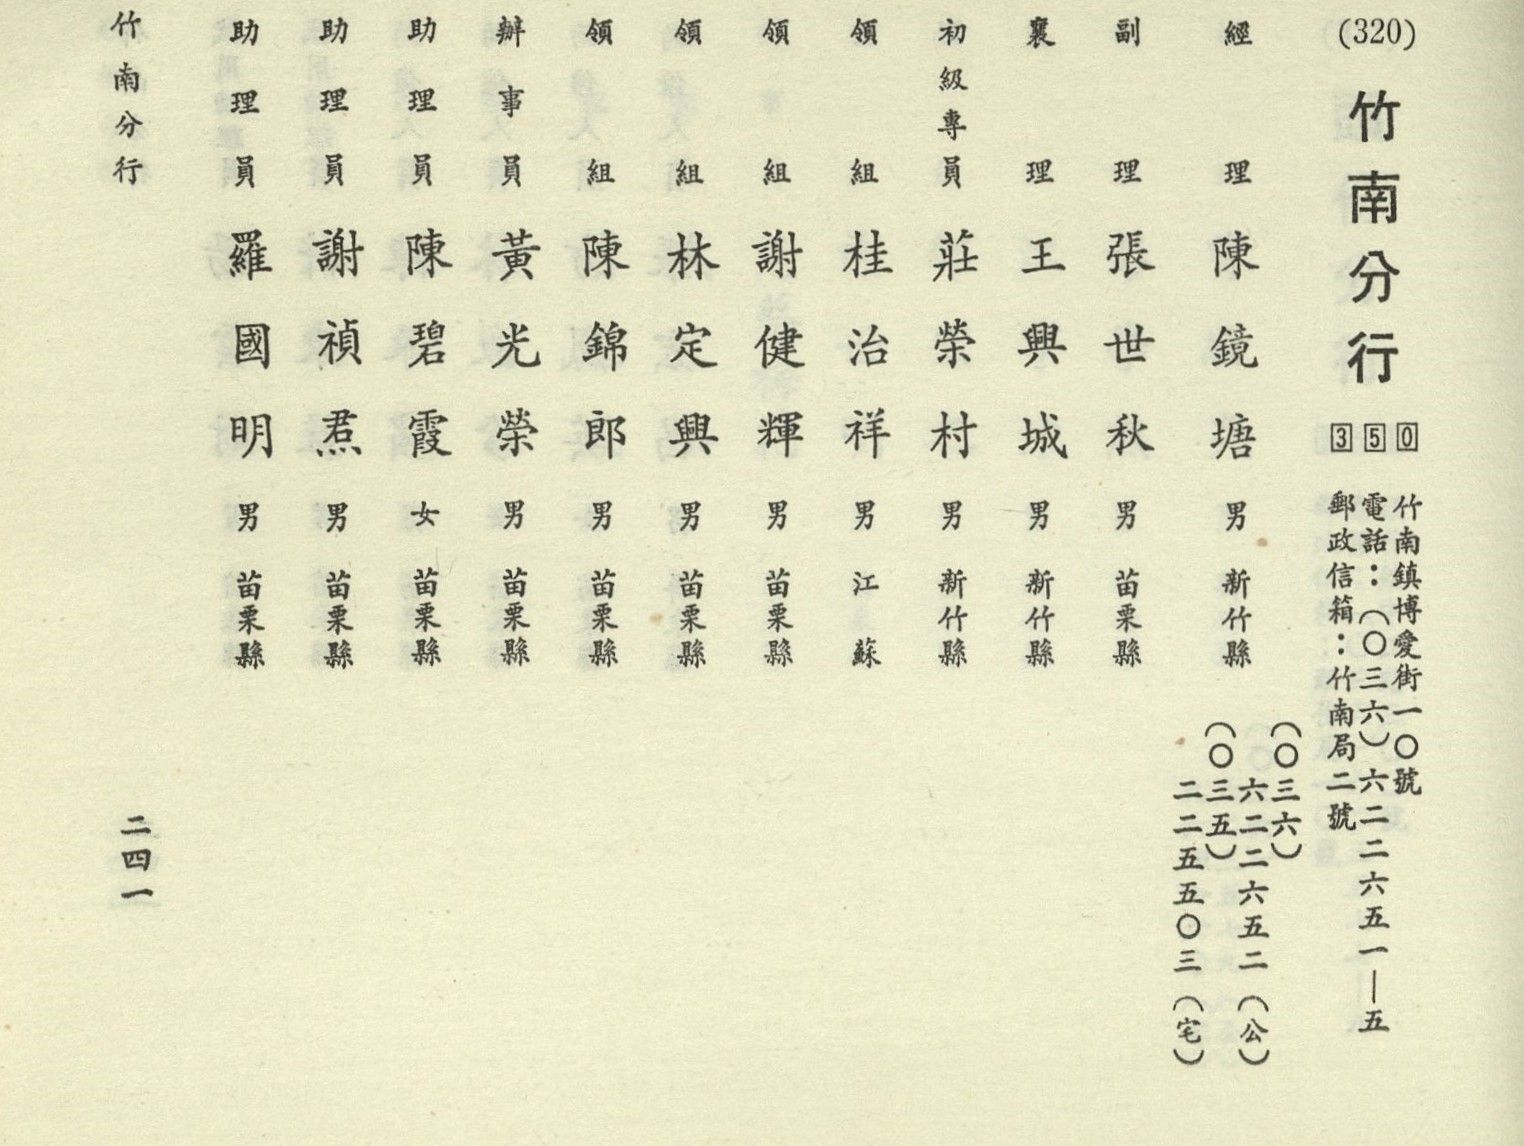 (320)
竹南分行
350
竹南鎮博愛街一〇號
電話：(〇三六)六二二六五一—五
郵政信箱：竹南局二號
經理 陳鏡塘 男 新竹縣
(〇三六)
六二二六五二(公)
(〇三五)
二二五五〇三(宅)
副理 張世秋 男 苗栗縣
襄理 王興城 男 新竹縣
初級專員 莊榮村 男 新竹縣
領組 桂治祥 男 江蘇
領組 謝健輝 男 苗栗縣
領組 林定興 男 苗栗縣
領組 陳錦郎 男 苗栗縣
辦事員 黃光榮 男 苗栗縣
助理員 陳碧霞 女 苗栗縣
助理員 謝禎焄 男 苗栗縣
助理員 羅國明 男 苗栗縣
竹南分行
二四一